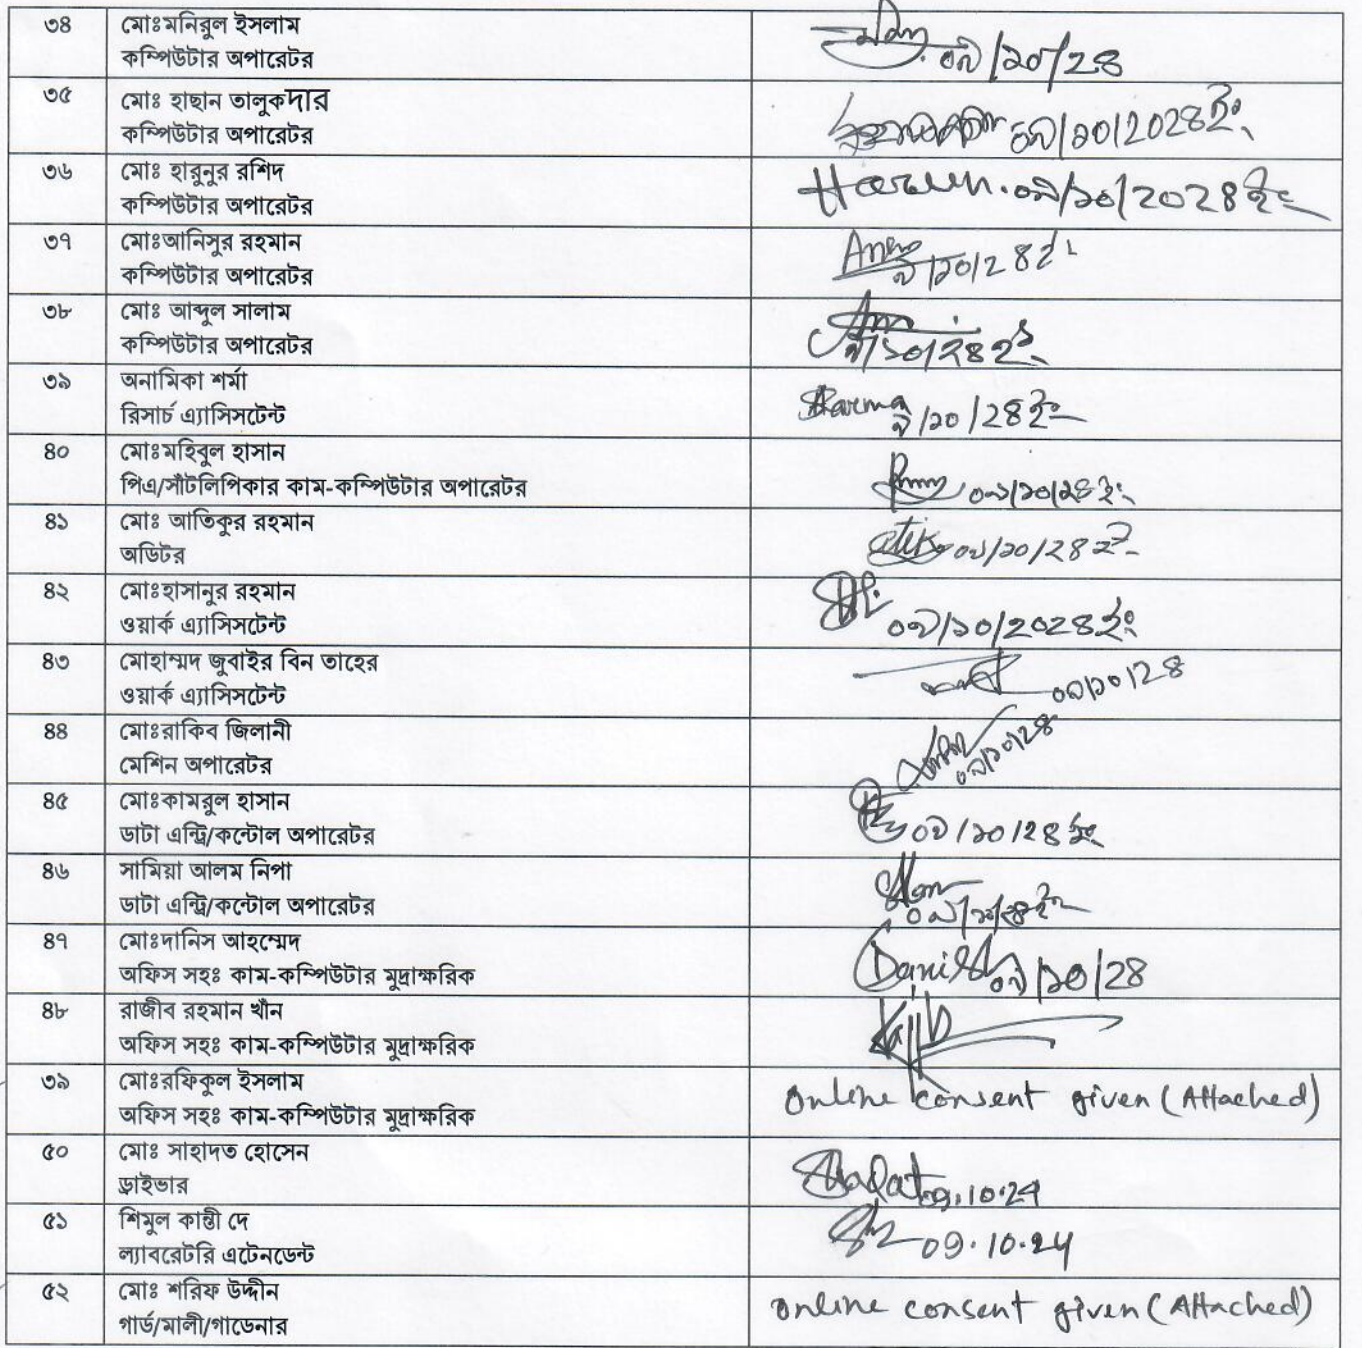 ৩৪ মোঃমনিরুল ইসলাম
কম্পিউটার অপারেটর
০৯/১০/২৪
৩৫ মোঃ হাছান তালুকদার
কম্পিউটার অপারেটর
০৯/১০/২০২৪ইং
৩৬ মোঃ হারুনুর রশিদ
কম্পিউটার অপারেটর
Harun. ০৯/১০/২০২৪ইং
৩৭ মোঃআনিসুর রহমান
কম্পিউটার অপারেটর
৯/১০/২৪ইং
৩৮ মোঃ আব্দুল সালাম
কম্পিউটার অপারেটর
৯/১০/২৪ইং
৩৯ অনামিকা শর্মা
রিসার্চ এ্যাসিসটেন্ট
Sharma ৯/১০/২৪ইং
৪০ মোঃমহিবুল হাসান
পিএ/সাঁটলিপিকার কাম-কম্পিউটার অপারেটর
০৯/১০/২৪ইং
৪১ মোঃ আতিকুর রহমান
অডিটর
atik ০৯/১০/২৪ইং
৪২ মোঃহাসানুর রহমান
ওয়ার্ক এ্যাসিসটেন্ট
০৯/১০/২০২৪ইং
৪৩ মোহাম্মদ জুবাইর বিন তাহের
ওয়ার্ক এ্যাসিসটেন্ট
০৯/১০/২৪
৪৪ মোঃরাকিব জিলানী
মেশিন অপারেটর
০৯/১০/২৪
৪৫ মোঃকামরুল হাসান
ডাটা এন্ট্রি/কন্টোল অপারেটর
০৯/১০/২৪ইং
৪৬ সামিয়া আলম নিপা
ডাটা এন্ট্রি/কন্টোল অপারেটর
০৯/১০/২৪ইং
৪৭ মোঃদানিস আহম্মেদ
অফিস সহঃ কাম-কম্পিউটার মুদ্রাক্ষরিক
Danish ০৯/১০/২৪
৪৮ রাজীব রহমান খাঁন
অফিস সহঃ কাম-কম্পিউটার মুদ্রাক্ষরিক
Rajib
৩৯ মোঃরফিকুল ইসলাম
অফিস সহঃ কাম-কম্পিউটার মুদ্রাক্ষরিক
Online consent given (Attached)
৫০ মোঃ সাহাদত হোসেন
ড্রাইভার
Shadat 9.10.24
৫১ শিমুল কান্তী দে
ল্যাবরেটরি এটেনডেন্ট
09.10.24
৫২ মোঃ শরিফ উদ্দীন
গার্ড/মালী/গাডেনার
Online consent given (Attached)